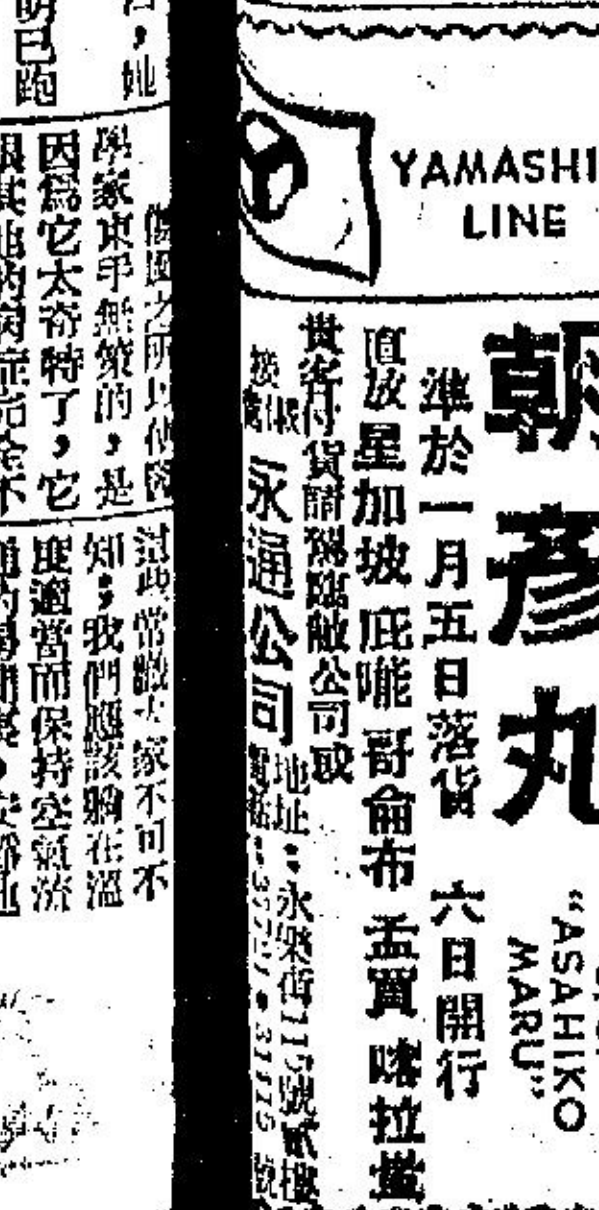 YAMASHI
LINE
朝彥丸
"ASAHIKO
MARU"
準於一月五日落貨 六日開行
直放星加坡 庇能 哥侖布 孟買 喀拉蚩
貴客付貨請移臨敝公司或
接載處
永通公司
地址:永樂街117號貳樓
電話:37721•31116號
她
明已跑
傷風之所以使醫
學家束手無策的,是
因爲它太奇特了,它
跟其他的病症完全不
這些常識大家不可不
知;我們應該躺在溫
度適當而保持空氣流